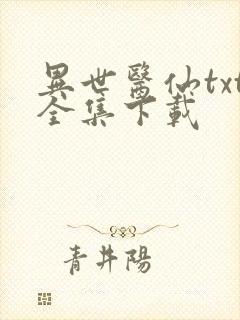 異世醫仙txt
全集下載
青井陽